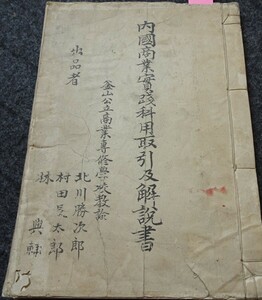 內國商業實踐科用取引及解說書
釜山公立商業專修學校教諭
出品者
北川勝次郎
村田吳太郎
株興